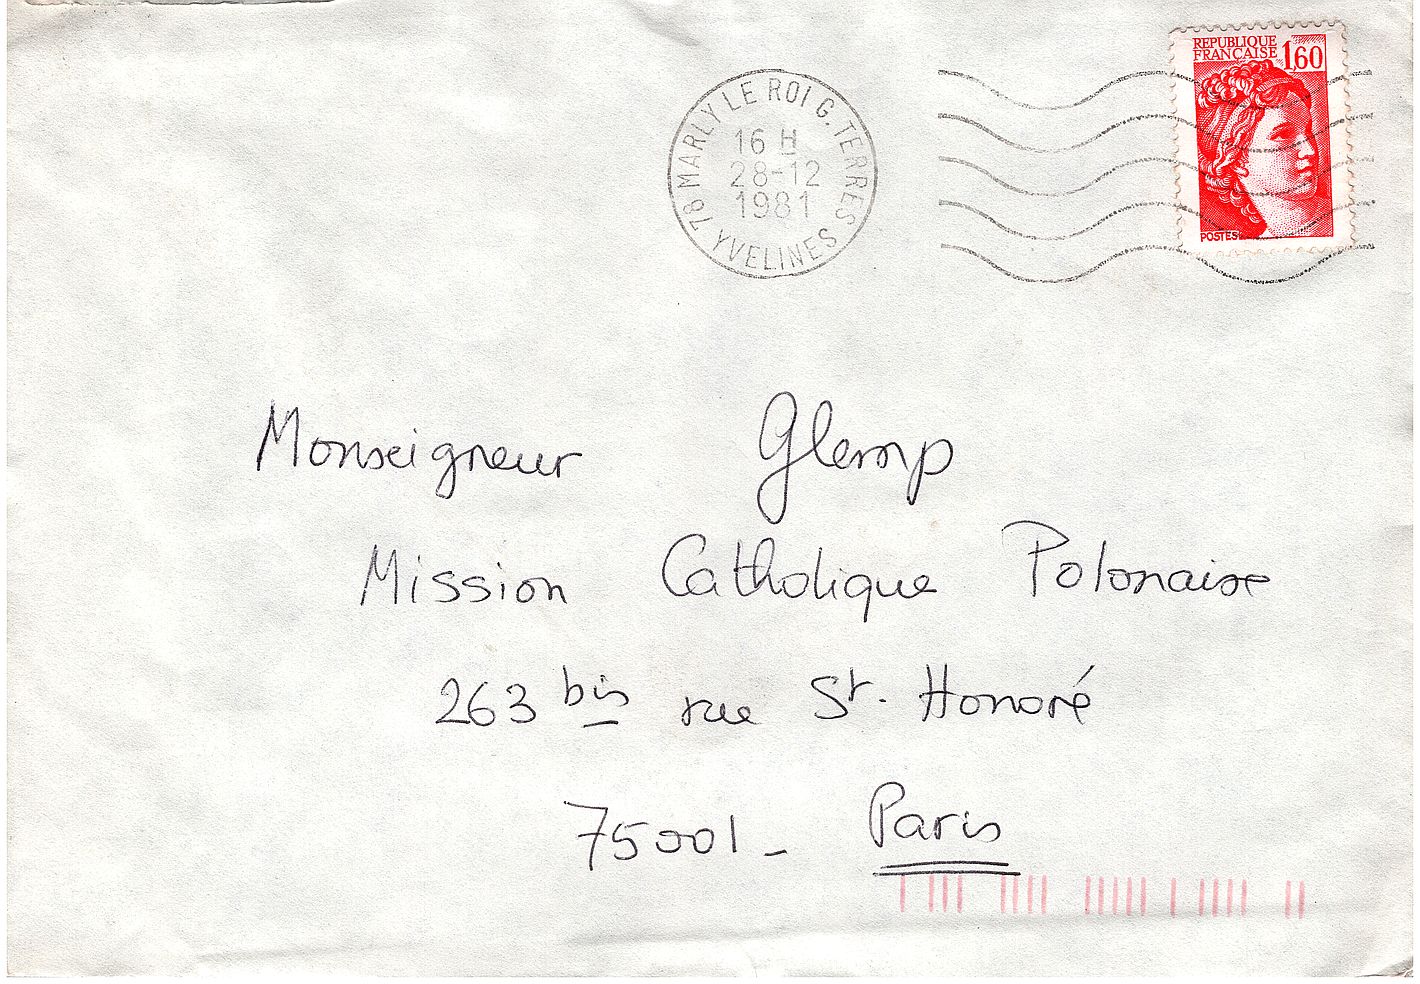 REPUBLIQUE
FRANÇAISE 1,60
POSTES
78 MARLY LE ROI G. TERRES
16 H
28-12
1981
YVELINES
Monseigneur Glemp
Mission Catholique Polonaise
263 bis rue St. Honoré
75001 - Paris